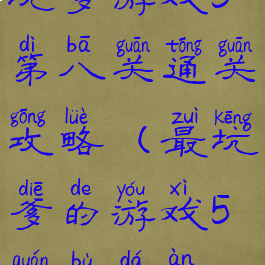 dì bā guān tōng guān
第八关通关
gōng lüè zuì kēng
攻略（最坑
diē de yóu xì
爹的游戏5
guān bù dá àn